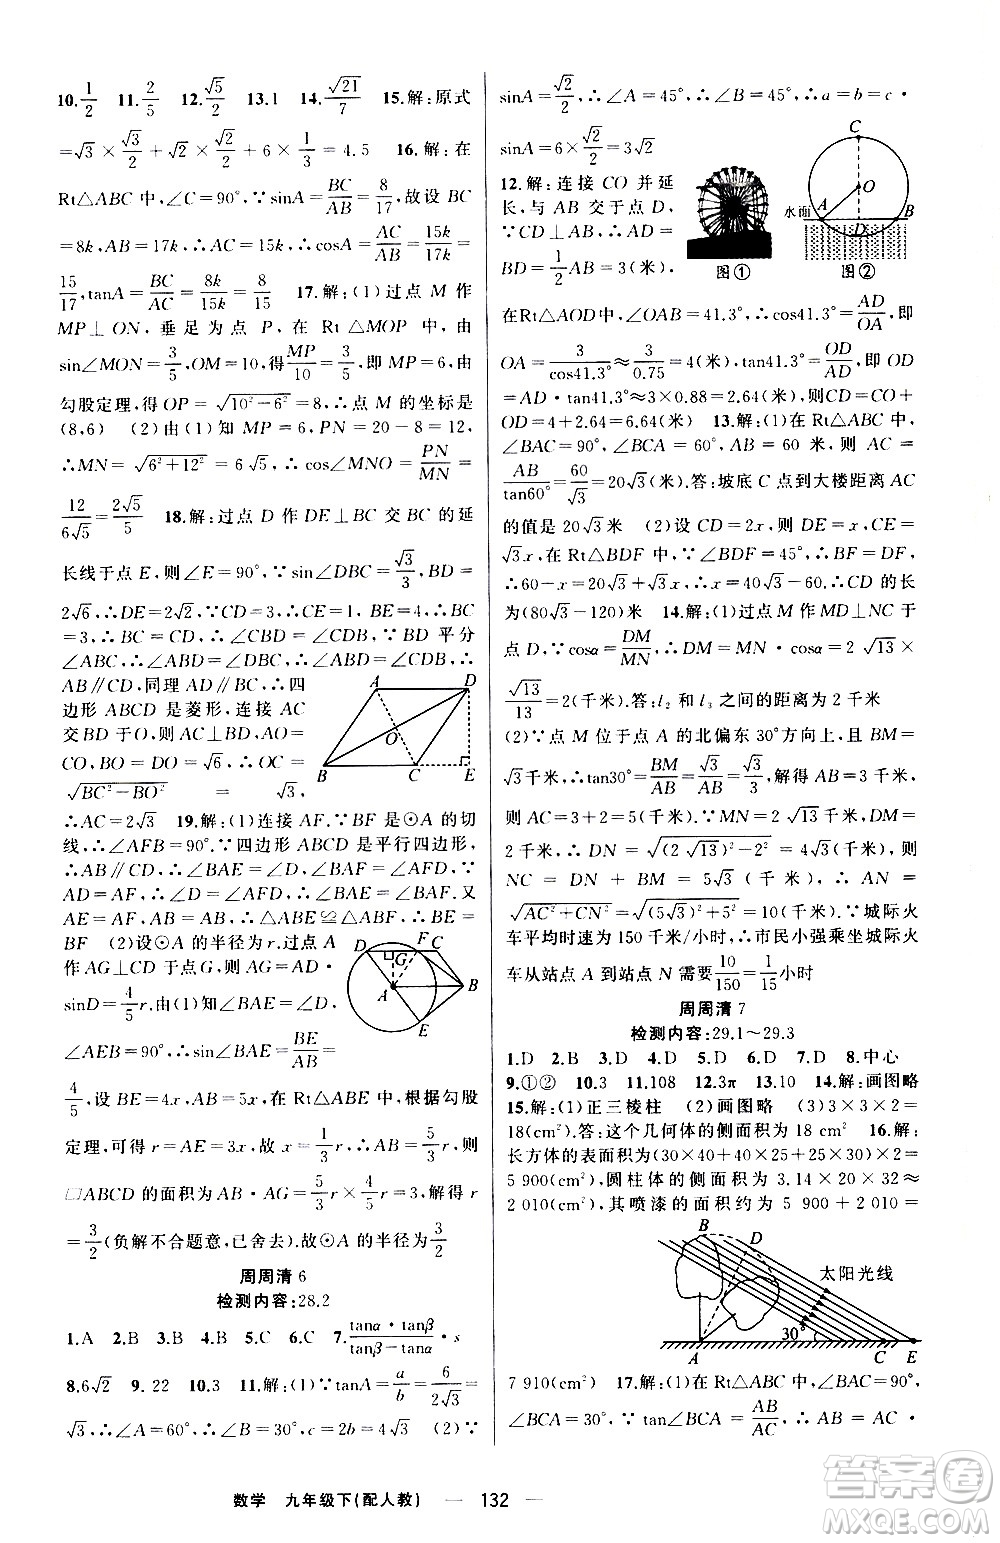 10. 1/2  11. 2/5  12. √5/2  13.1  14. √21/7  15.解:原式
=√3×√3/2+√2×√2/2+6×1/3=4.5  16.解:在
Rt△ABC中,∠C=90°,∵sinA=BC/AB=8/17,故设BC
=8k,AB=17k,∴AC=15k,∴cosA=AC/AB=15k/17k=
15/17,tanA=BC/AC=8k/15k=8/15  17.解:(1)过点M作
MP⊥ON,垂足为点P,在Rt△MOP中,由
sin∠MON=3/5,OM=10,得MP/10=3/5,即MP=6,由
勾股定理,得OP=√(10²-6²)=8,∴点M的坐标是
(8,6)  (2)由(1)知MP=6,PN=20-8=12,
∴MN=√(6²+12²)=6√5,∴cos∠MNO=PN/MN=
12/6√5=2√5/5  18.解:过点D作DE⊥BC交BC的延
长线于点E,则∠E=90°,∵sin∠DBC=√3/3,BD=
2√6,∴DE=2√2,∵CD=3,∴CE=1,BE=4,∴BC
=3,∴BC=CD,∴∠CBD=∠CDB,∵BD平分
∠ABC,∴∠ABD=∠DBC,∴∠ABD=∠CDB,∴
AB∥CD,同理AD∥BC,∴四
边形ABCD是菱形,连接AC
交BD于O,则AC⊥BD,AO=
CO,BO=DO=√6,∴OC=
√(BC²-BO²)=√3,
∴AC=2√3  19.解:(1)连接AF.∵BF是⊙A的切
线,∴∠AFB=90°.∵四边形ABCD是平行四边形,
∴AD∥BC,∴∠BAE=∠D,∠BAF=∠AFD.∵
AD=AF,∴∠D=∠AFD,∴∠BAE=∠BAF.又
AE=AF,AB=AB,∴△ABE≌△ABF,∴BE=
BF  (2)设⊙A的半径为r,过点A
作AG⊥CD于点G,则AG=AD·
sinD=4/5r,由(1)知∠BAE=∠D,
∠AEB=90°,∴sin∠BAE=BE/AB=
4/5,设BE=4x,AB=5x,在Rt△ABE中,根据勾股
定理,可得r=AE=3x,故x=1/3r,∴AB=5/3r,则
□ABCD的面积为AB·AG=5/3r×4/5r=3,解得r
=3/2(负解不合题意,已舍去).故⊙A的半径为3/2
周周清6
检测内容:28.2
1.A  2.B  3.B  4.B  5.C  6.C  7.tanα·tanβ/(tanβ-tanα)·s
8.6√2  9.22  10.3  11.解:(1)∵tanA=a/b=6/2√3=
√3,∴∠A=60°,∴∠B=30°,c=2b=4√3  (2)∵
A D O B C E
D F C G A B E
sinA=√2/2,∴∠A=45°,∴∠B=45°,∴a=b=c·
sinA=6×√2/2=3√2
12.解:连接CO并延
长,与AB交于点D,
∵CD⊥AB,∴AD=
BD=1/2AB=3(米),
C O 水面 A B D
图① 图②
在Rt△AOD中,∠OAB=41.3°,∴cos41.3°=AD/OA,即
OA=3/cos41.3°≈3/0.75=4(米),tan41.3°=OD/AD,即OD
=AD·tan41.3°≈3×0.88=2.64(米),则CD=CO+
OD=4+2.64=6.64(米)  13.解:(1)在Rt△ABC中,
∠BAC=90°,∠BCA=60°,AB=60米,则AC=
AB/tan60°=60/√3=20√3(米).答:坡底C点到大楼距离AC
的值是20√3米  (2)设CD=2x,则DE=x,CE=
√3x,在Rt△BDF中,∵∠BDF=45°,∴BF=DF,
∴60-x=20√3+√3x,∴x=40√3-60,∴CD的长
为(80√3-120)米  14.解:(1)过点M作MD⊥NC于
点D,∵cosα=DM/MN,∴DM=MN·cosα=2√13×
√13/13=2(千米).答:l₂和l₃之间的距离为2千米
(2)∵点M位于点A的北偏东30°方向上,且BM=
√3千米,∴tan30°=BM/AB=√3/AB=√3/3,解得AB=3千米,
则AC=3+2=5(千米),∵MN=2√13千米,DM=
2千米,∴DN=√((2√13)²-2²)=4√3(千米),则
NC=DN+BM=5√3(千米),∴AN=
√(AC²+CN²)=√((5√3)²+5²)=10(千米).∵城际火
车平均时速为150千米/小时,∴市民小强乘坐城际火
车从站点A到站点N需要10/150=1/15小时
周周清7
检测内容:29.1~29.3
1.D  2.B  3.D  4.D  5.D  6.D  7.D  8.中心
9.①②  10.3  11.108  12.3π  13.10  14.解:画图略
15.解:(1)正三棱柱  (2)画图略  (3)3×3×2=
18(cm²).答:这个几何体的侧面积为18 cm²  16.解:
长方体的表面积为(30×40+40×25+25×30)×2=
5 900(cm²),圆柱体的侧面积为3.14×20×32≈
2 010(cm²),其喷漆的面积约为5 900+2 010=
B D 太阳光线 30° A C E
7 910(cm²)  17.解:(1)在Rt△ABC中,∠BAC=90°,
∠BCA=30°,∵tan∠BCA=AB/AC,∴AB=AC·
数学  九年级下(配人教)  — 132 —
答案圈
MXQE.COM